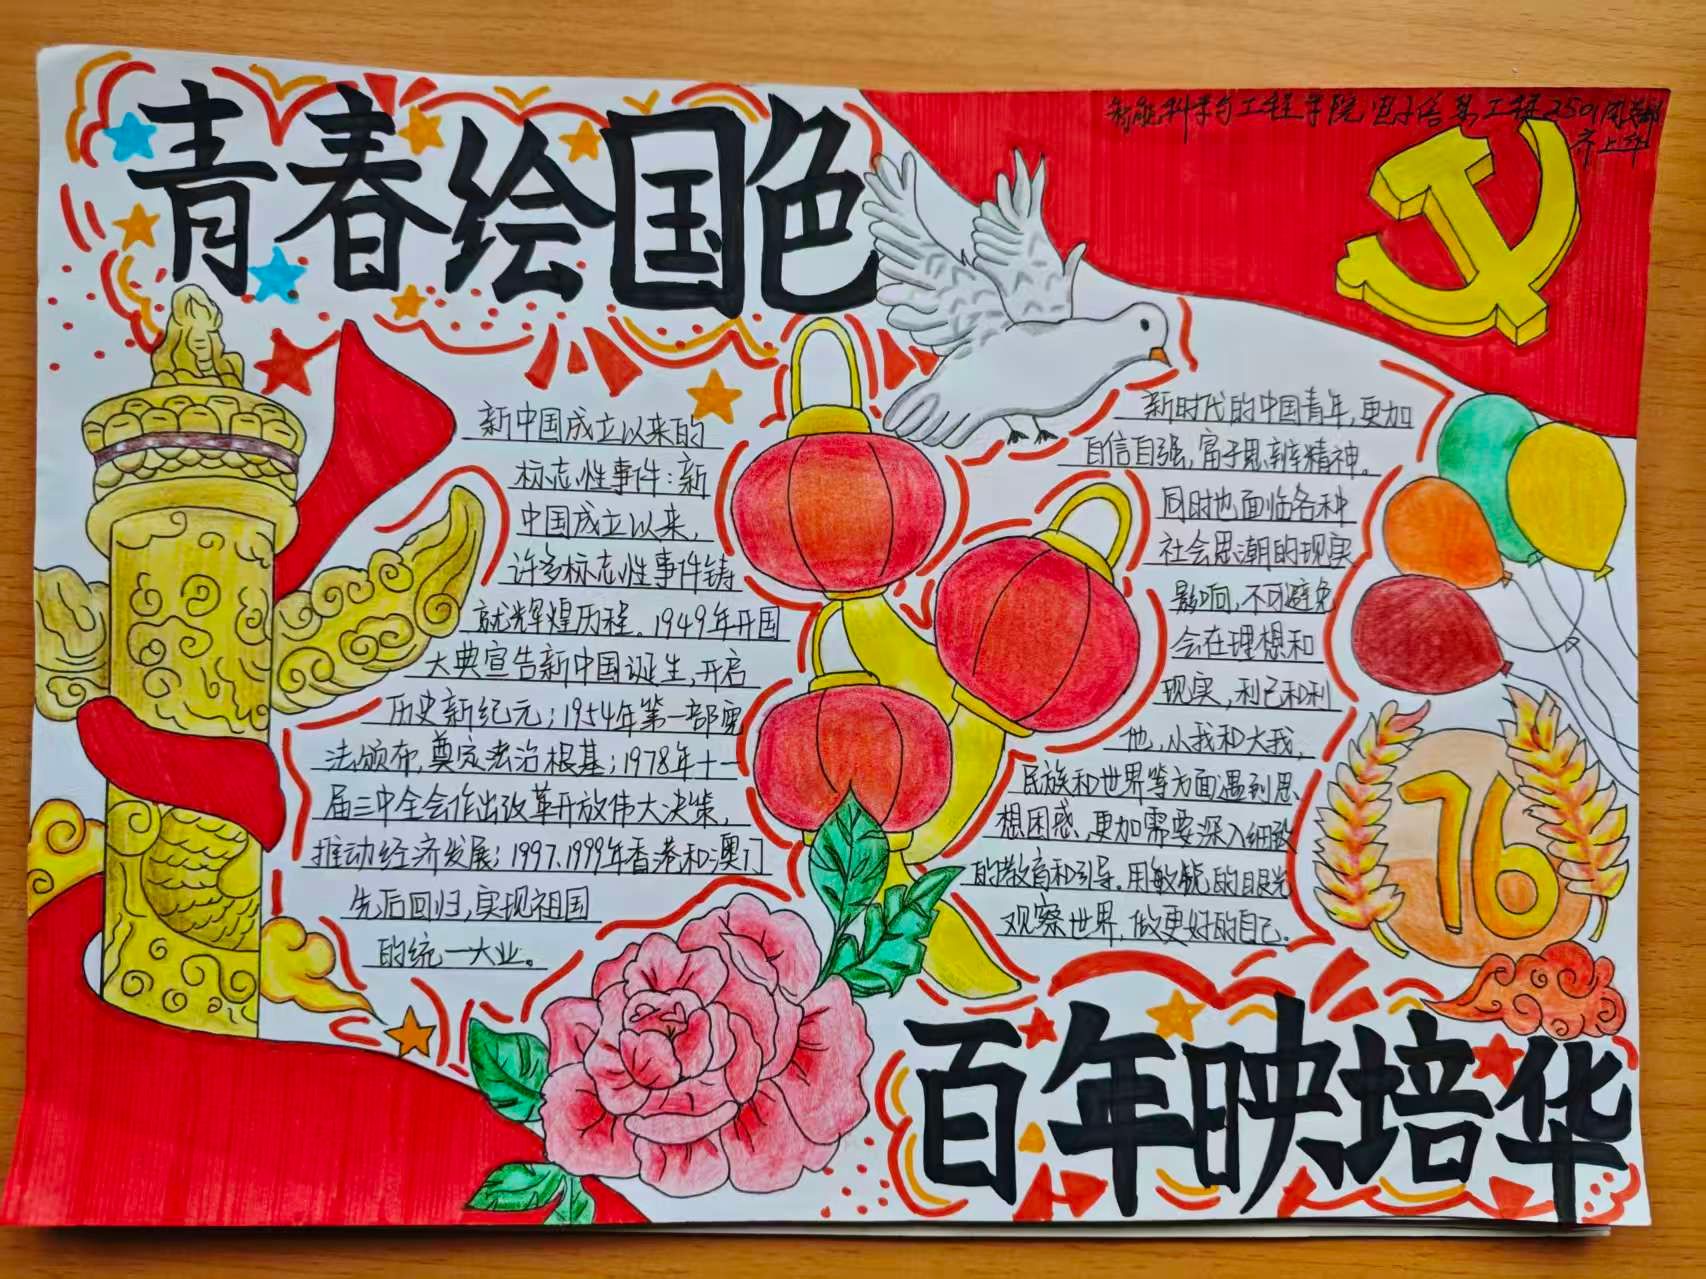 青春绘国色
新能科学与工程学院电子信息工程2501
齐上华
新中国成立以来的
标志性事件:新
中国成立以来,
许多标志性事件铸
就辉煌历程。1949年开国
大典宣告新中国诞生,开启
历史新纪元;1954年第一部宪
法颁布,奠定法治根基;1978年十一
届三中全会作出改革开放伟大决策,
推动经济发展;1997、1999年香港和澳门
先后回归,实现祖国
的统一大业。
新时代的中国青年,更加
自信自强,富于思辨精神。
同时也面临各种
社会思潮的现实
影响,不可避免
会在理想和
现实,利己和利
他,从我和大我,
民族和世界等方面遇到思
想困惑,更加需要深入细致
的教育和引导。用敏锐的眼光
观察世界,做更好的自己。
76
百年映培华